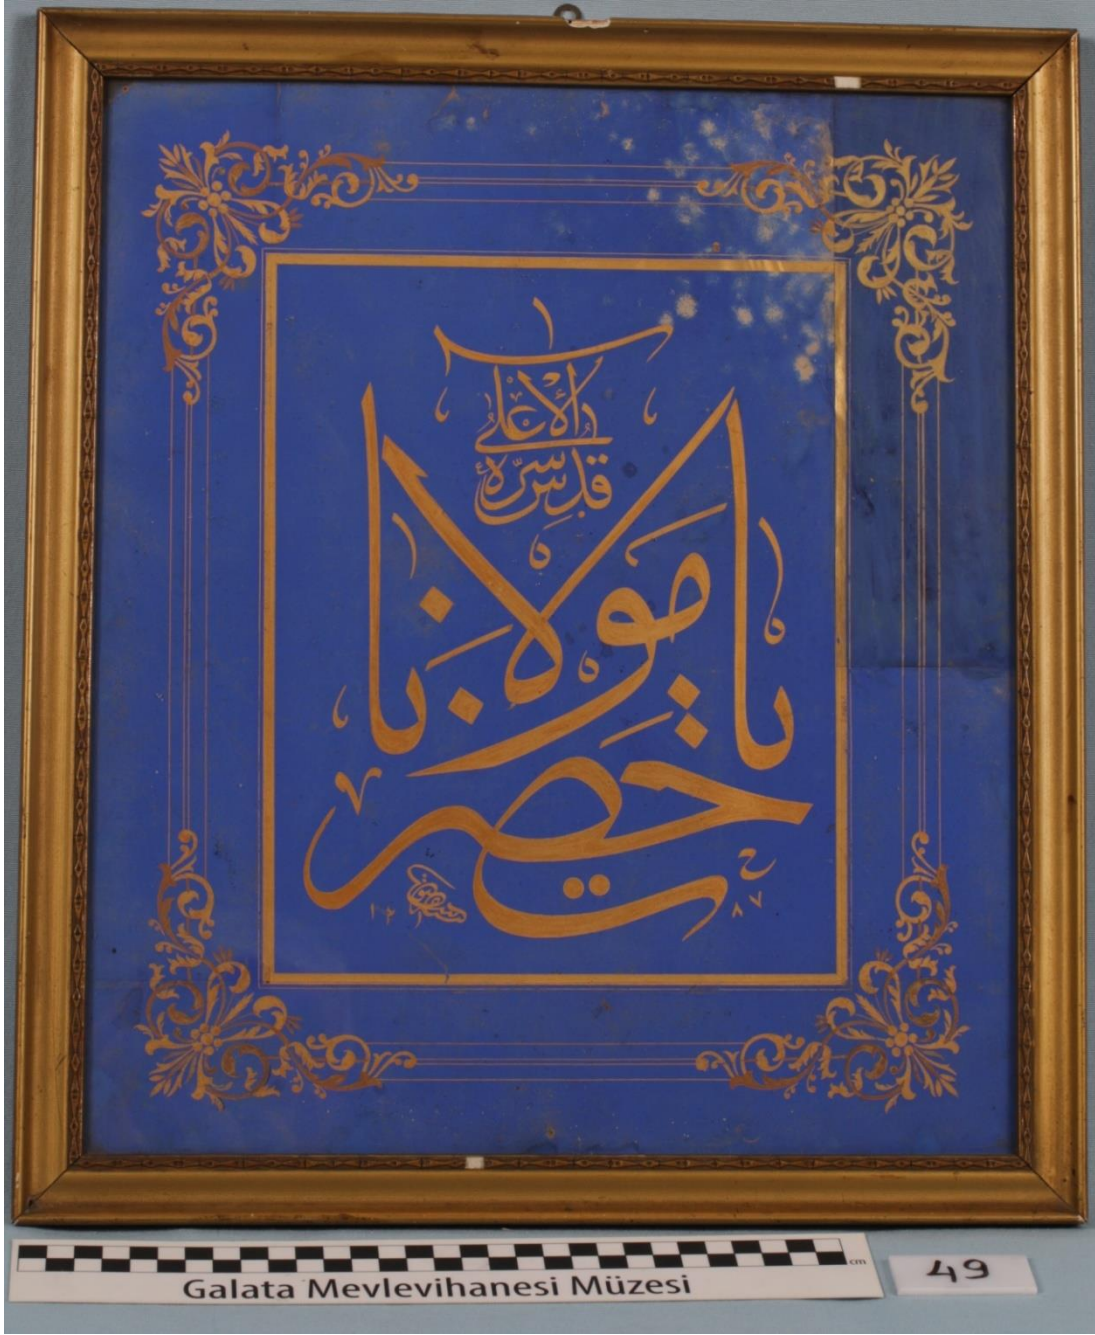 يا حضرت مولانا
قدس سره
الأعلى
١٢٨٧
cm
Galata Mevlevihanesi Müzesi
49